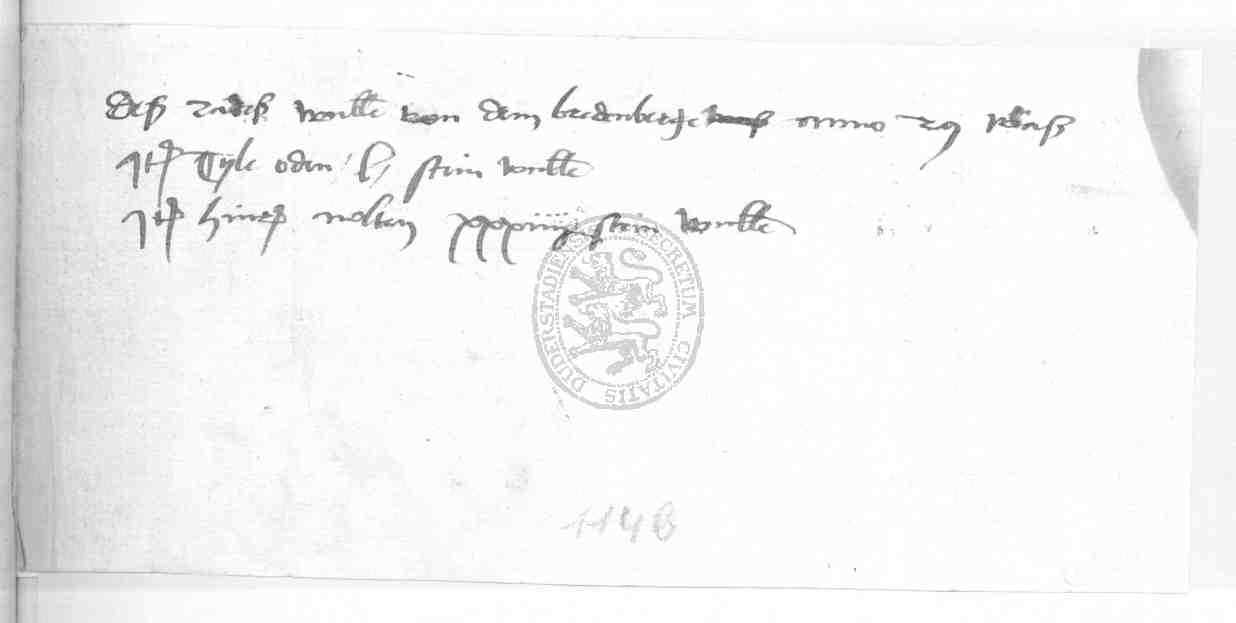 des rades wulle von dem bredenberge anno
Jt Tyle oden l stein wulle
Jt hinr nolten xxxiiij stein wulle
SECRETUM CIVITATIS DUDERSTADIENSIS
1146